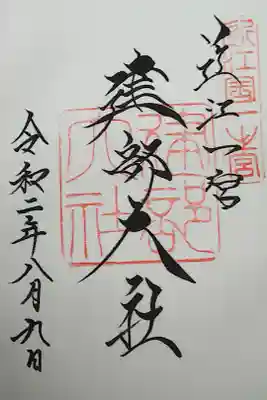 近江一宮
建部大社
令和二年八月九日
近江国一之宮
建部大社